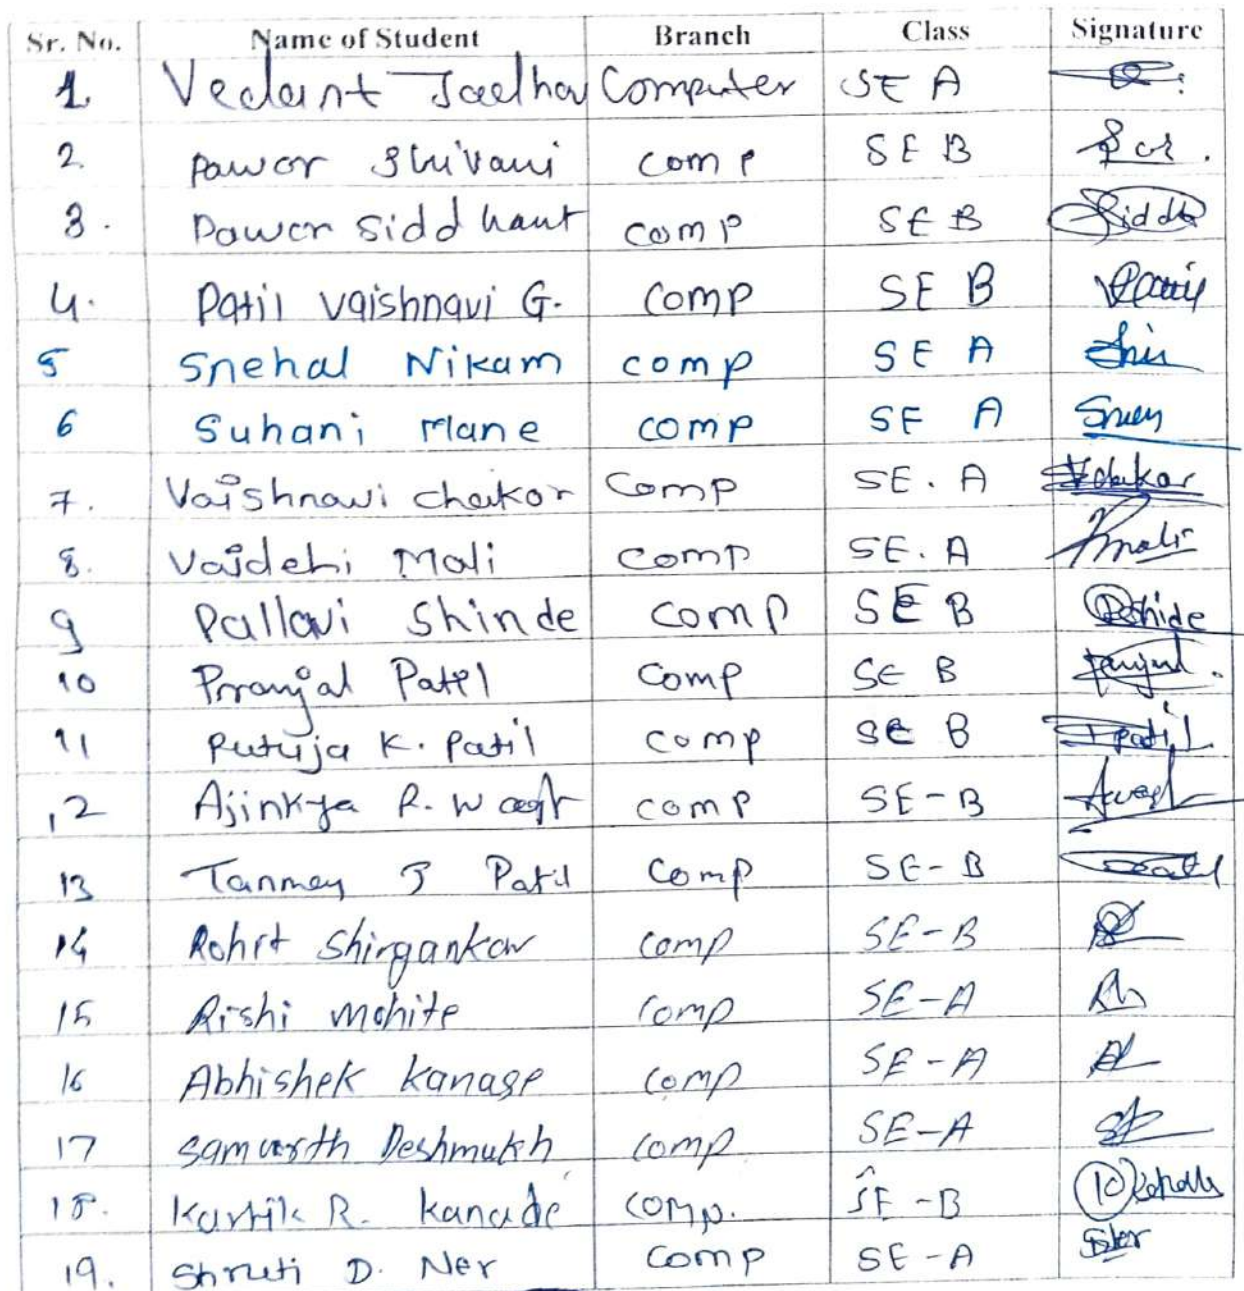 Sr. No. Name of Student Branch Class Signature
1. Vedant Jadhav Computer SE A
2. Pawar Shivani comp SE B
3. Pawar Siddhant comp SE B Siddh
4. Patil Vaishnavi G. comp SE B
5 Snehal Nikam comp SE A
6 Suhani Mane comp SE A
7. Vaishnavi Chaikor Comp SE. A
8. Vaidehi Mali comp SE. A
9 Pallavi Shinde comp SE B
10 Pranjal Patil Comp SE B
11 Rutuja K. Patil comp SE B Patil
12 Ajinkya R. Wagh comp SE-B
13 Tanmay J Patil Comp SE-B
14 Rohit Shirgankar comp SE-B
15 Rishi Mohite comp SE-A
16 Abhishek Kanase comp SE-A
17 Samarth Deshmukh comp SE-A
18. Kartik R. Kanade comp. SE-B
19. Shruti D. Ner Comp SE-A